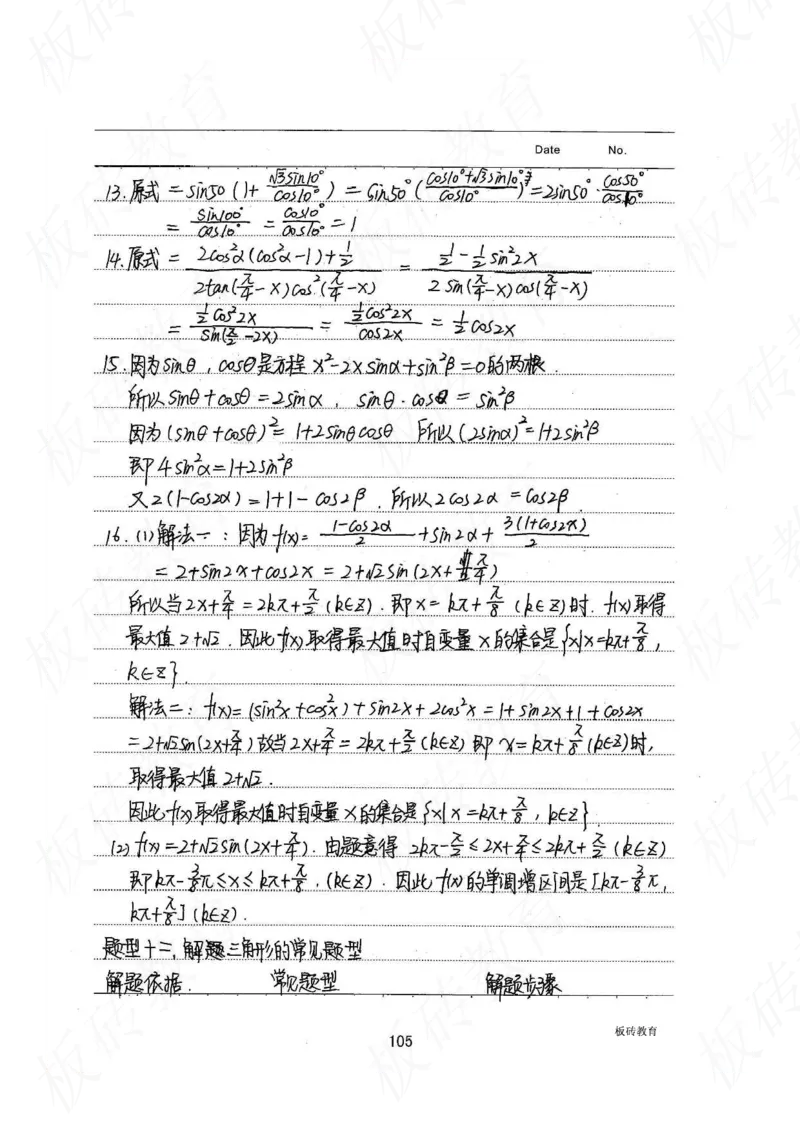 Date No.
13.原式 = sin50 (1+ √3sin10°/cos10°) = Sin50° (cos10°+√3sin10°/cos10°) = 2sin50° · cos50°/cos10°
= sin100°/cos10° = cos10°/cos10° = 1
14.原式 = 2cos²α(cos²α-1)+1/2 / 2tan(π/4-x)cos²(π/4-x) = 1/2-1/2sin²2x / 2sin(π/4-x)cos(π/4-x)
= 1/2cos²2x / sin(π/2-2x) = 1/2cos²2x / cos2x = 1/2cos2x
15.因为sinθ,cosθ是方程 x²-2xsinα+sin²β=0的两根.
所以sinθ+cosθ=2sinα, sinθ·cosθ=sin²β
因为(sinθ+cosθ)²=1+2sinθcosθ 所以(2sinα)²=1+2sin²β
即4sin²α=1+2sin²β
又2(1-cos2α)=1+1-cos2β.所以2cos2α=cos2β
16.(1)解法一:因为f(x)= 1-cos2α/2 +sin2α+ 3(1+cos2x)/2
=2+sin2x+cos2x=2+√2sin(2x+π/4)
所以当2x+π/4=2kπ+π/2(k∈Z).即x=kπ+π/8(k∈Z)时.f(x)取得
最大值2+√2.因此f(x)取得最大值时自变量x的集合是{x|x=kπ+π/8,
k∈Z}.
解法二:f(x)=(sin²x+cos²x)+sin2x+2cos²x=1+sin2x+1+cos2x
=2+√2sin(2x+π/4)故当2x+π/4=2kπ+π/2(k∈Z)即x=kπ+π/8(k∈Z)时,
取得最大值2+√2.
因此f(x)取得最大值时自变量x的集合是{x|x=kπ+π/8,k∈Z}
(2)f(x)=2+√2sin(2x+π/4).由题意得 2kπ-π/2≤2x+π/4≤2kπ+π/2(k∈Z)
即kπ-3/8π≤x≤kπ+π/8.(k∈Z).因此f(x)的单调增区间是[kπ-3/8π,
kπ+π/8](k∈Z).
题型十二,解题三角形的常见题型
解题依据. 常见题型 解题步骤
105
板砖教育